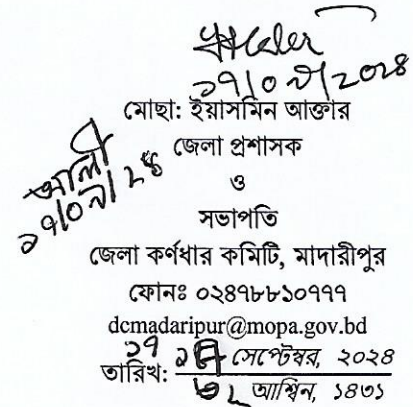 ১৭/০৯/২০২৪
মোছা: ইয়াসমিন আক্তার
জেলা প্রশাসক
ও
সভাপতি
জেলা কর্ণধার কমিটি, মাদারীপুর
ফোনঃ ০২৪৭৮৮১০৭৭৭
dcmadaripur@mopa.gov.bd
১৭
তারিখ: সেপ্টেম্বর, ২০২৪
আশ্বিন, ১৪৩১
১৭/০৯/২৪